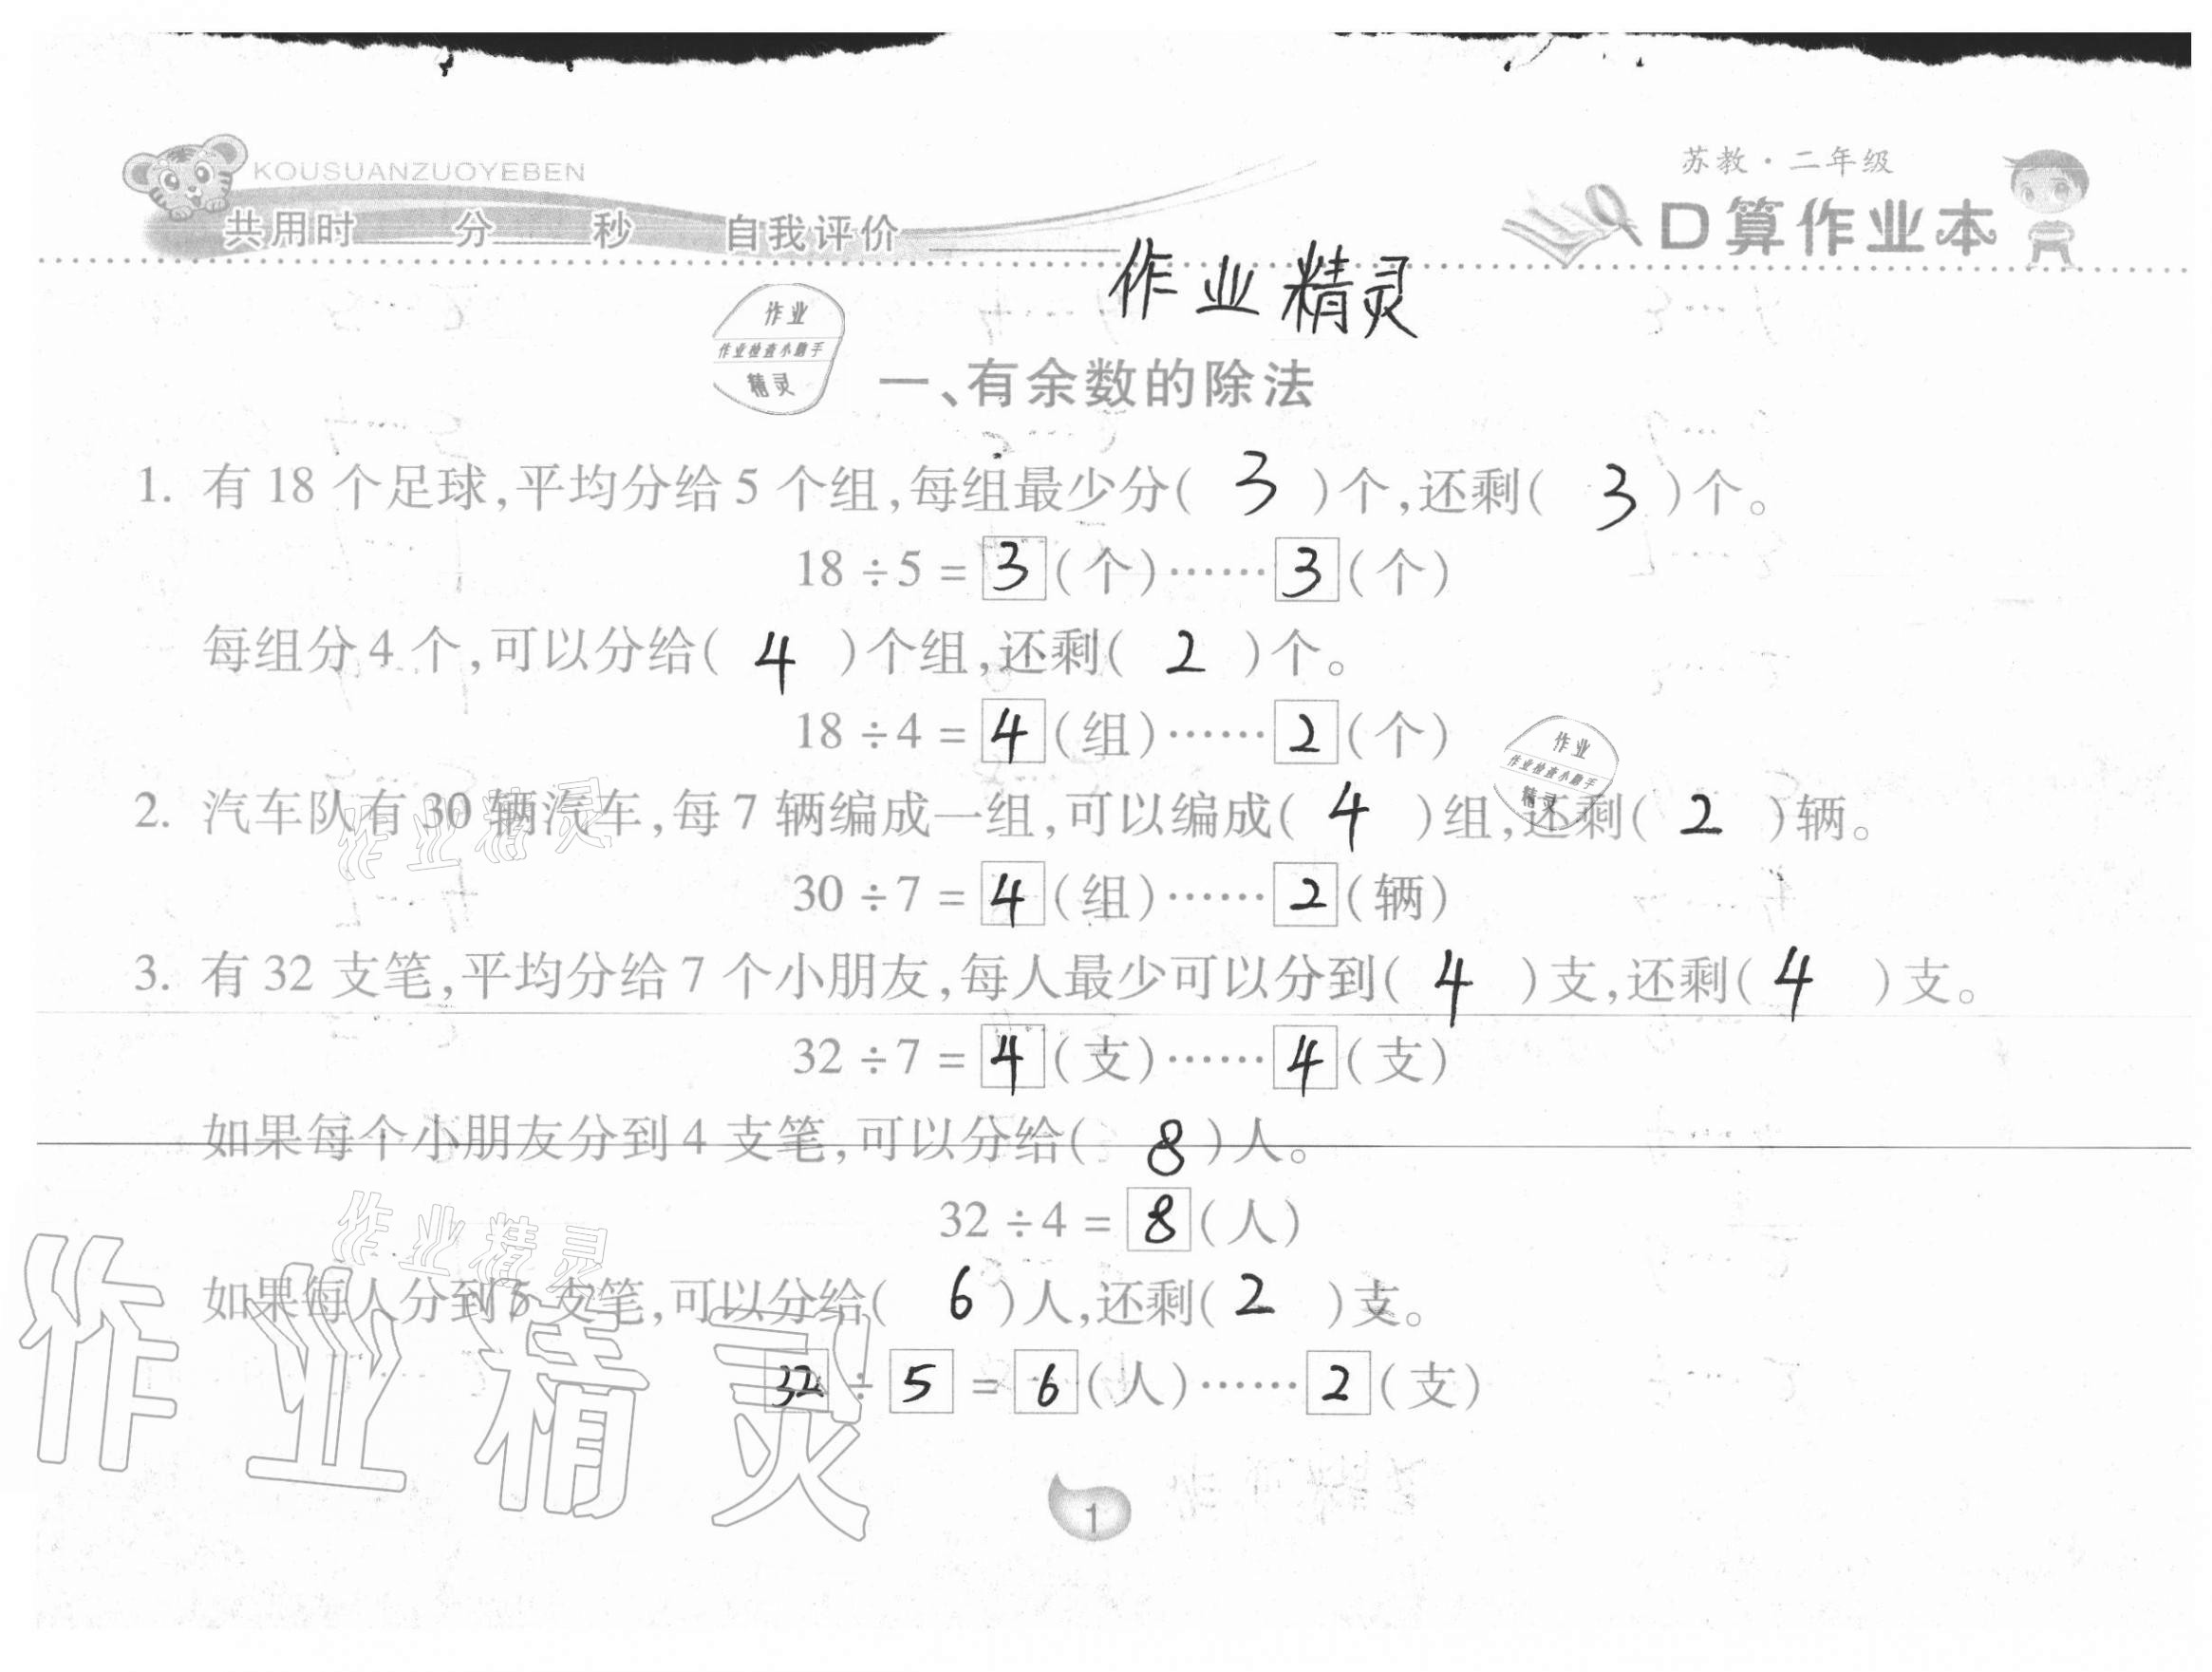 KOUSUANZUOYEBEN
苏教·二年级
共用时 分 秒 自我评价
口算作业本
作业精灵
作业
作业检查小助手
精灵
一、有余数的除法
1. 有 18 个足球,平均分给 5 个组,每组最少分( 3 )个,还剩( 3 )个。
18 ÷ 5 = 3 (个)……3 (个)
每组分 4 个,可以分给( 4 )个组,还剩( 2 )个。
18 ÷ 4 = 4 (组)……2 (个)
作业
作业检查小助手
精灵
2. 汽车队有 30 辆汽车,每 7 辆编成一组,可以编成( 4 )组,还剩( 2 )辆。
作业精灵
30 ÷ 7 = 4 (组)……2 (辆)
3. 有 32 支笔,平均分给 7 个小朋友,每人最少可以分到( 4 )支,还剩( 4 )支。
32 ÷ 7 = 4 (支)……4 (支)
如果每个小朋友分到 4 支笔,可以分给( 8 )人。
32 ÷ 4 = 8 (人)
作业精灵
如果每人分到 5 支笔,可以分给( 6 )人,还剩( 2 )支。
32 ÷ 5 = 6 (人)……2 (支)
作业精灵
1